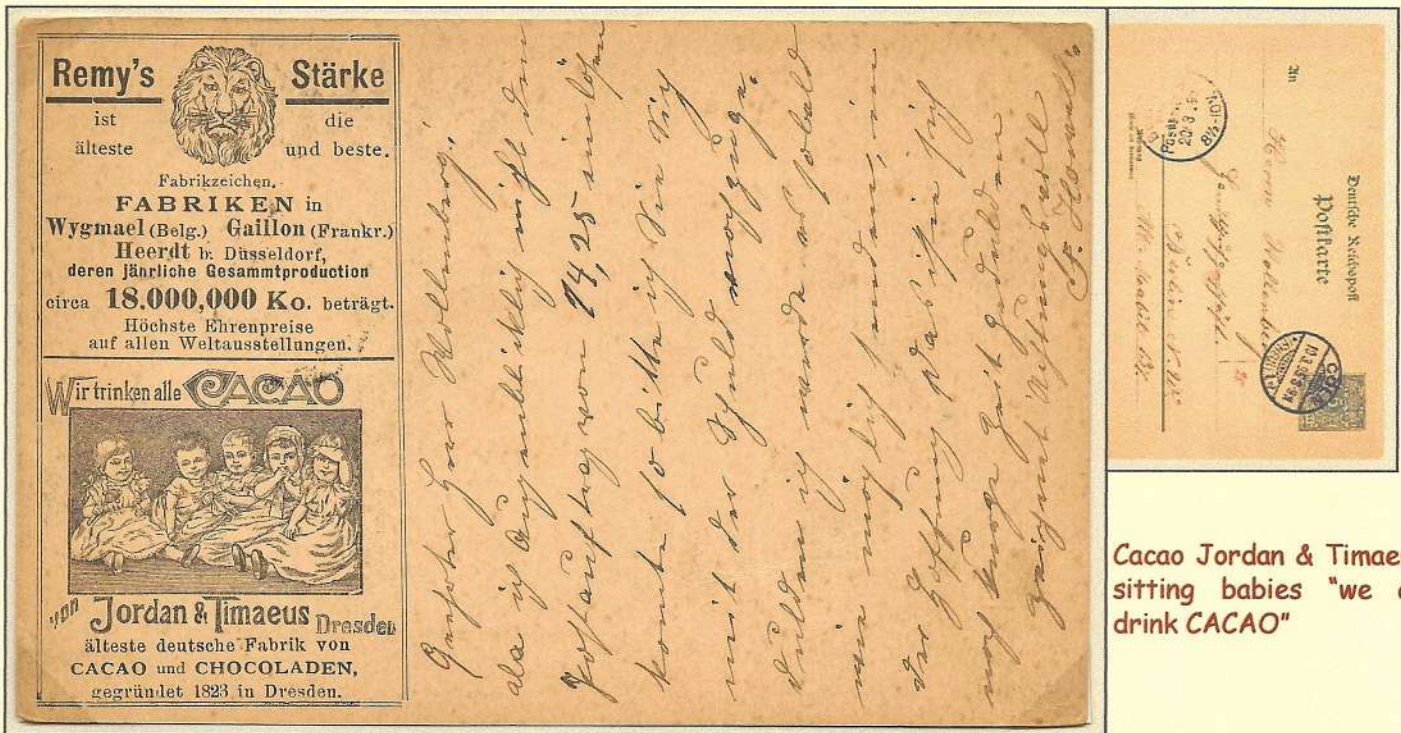 Remy's Stärke
ist die
älteste und beste.
Fabrikzeichen.
FABRIKEN in
Wygmael (Belg.) Gaillon (Frankr.)
Heerdt b. Düsseldorf,
deren jährliche Gesammtproduction
circa 18.000,000 Ko. beträgt.
Höchste Ehrenpreise
auf allen Weltausstellungen.
Wir trinken alle CACAO
von Jordan & Timaeus Dresden
älteste deutsche Fabrik von
CACAO und CHOCOLADEN,
gegründet 1823 in Dresden.
Geehrter Herr Wollenberg!
da ich augenblicklich nicht den
Postauftrag von 14,25 einlösen
konnte so bitte ich Sie sich
mit der Schuld noch zu
dulden ich werde es sobald
wie möglich senden, in
der Hoffnung das Sie sich
noch kurze Zeit gedulden
zeichnet Achtungsvoll
Deutsche Reichspost
Postkarte
An
Herrn Wollenberg
Berlin N.W.
Cacao Jordan & Timae
sitting babies "we a
drink CACAO"